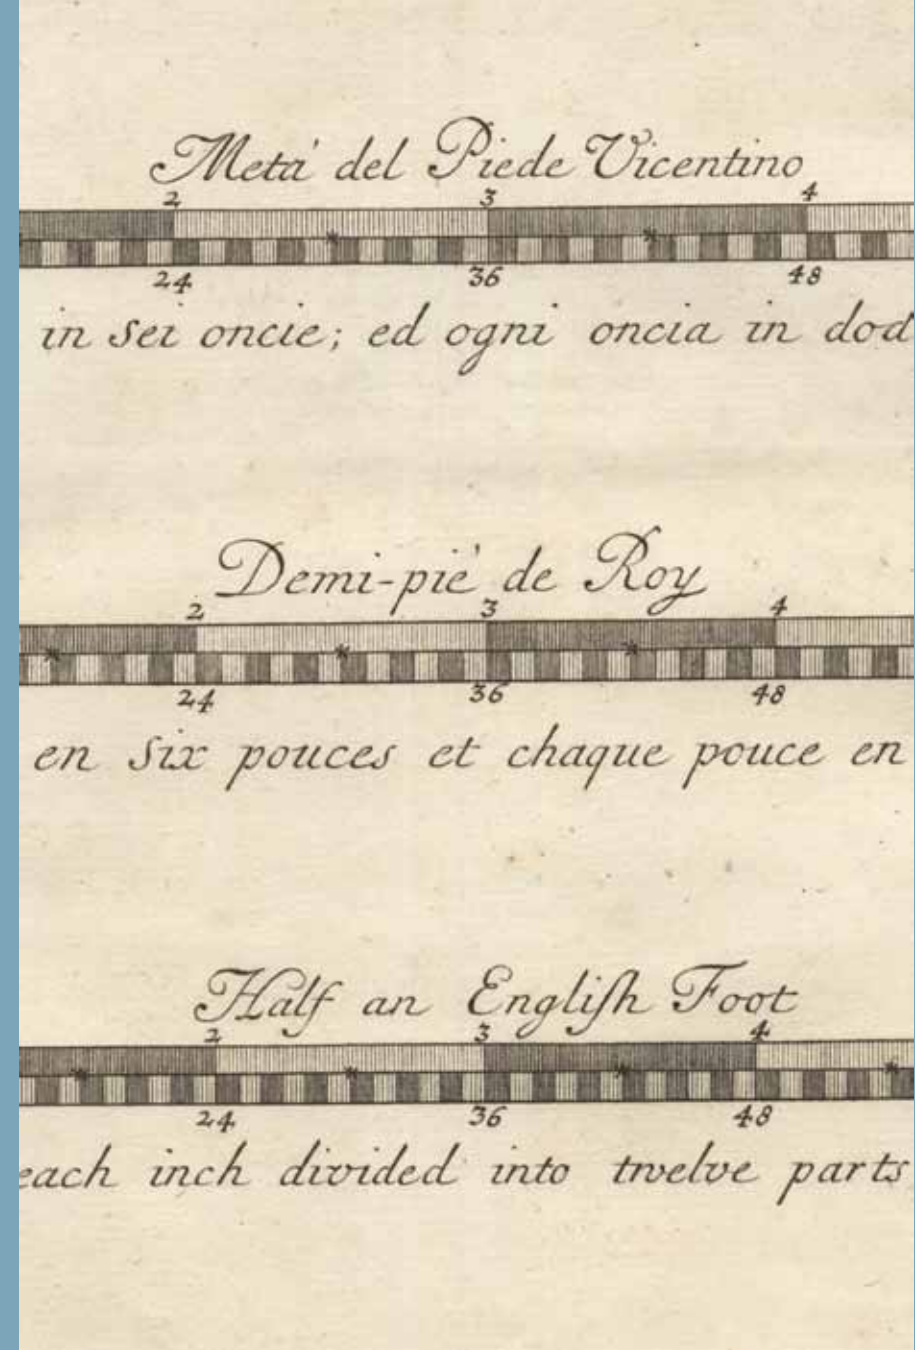 Metà del Piede Vicentino
2 3 4
24 36 48
in sei oncie; ed ogni oncia in dod
Demi-piè de Roy
2 3 4
24 36 48
en six pouces et chaque pouce en
Half an Engliſh Foot
2 3 4
24 36 48
each inch divided into twelve parts